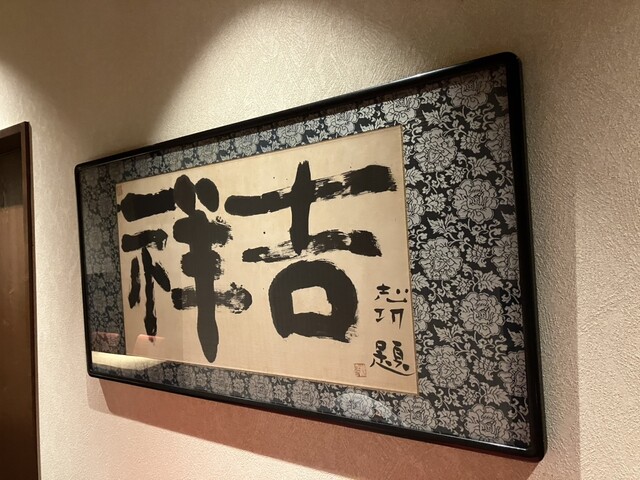 吉祥
題